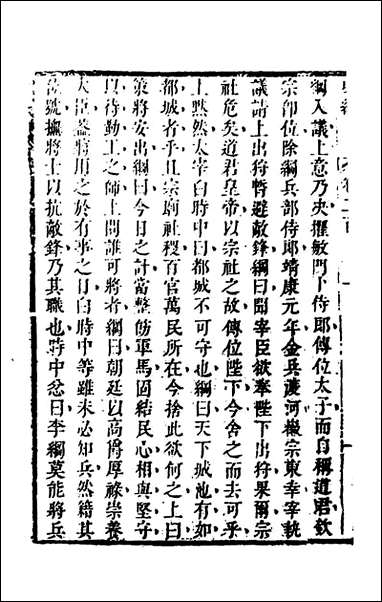 綱入議上意乃決擢敏門下侍郎傳位太子而自稱道君欽
宗卽位除綱兵部侍郎靖康元年金兵渡河徽宗東幸宰執
議請上出狩暫避敵鋒綱曰聞宰臣欲奉陛下出狩果爾宗
社危矣道君皇帝以宗社之故傳位陛下今舍之而去可乎
上黙然太宰白時中曰都城不可守也綱曰天下城池有如
都城者乎且宗廟社稷百官萬民所在今捨此欲何之上曰
策將安出綱曰今日之計當整飭軍馬固結民心相與堅守
以待勤王之師上問誰可將者綱曰朝廷以高爵厚祿崇養
大臣蓋將用之於有事之日白時中等雖未必知兵然籍其
位號撫將士以抗敵鋒乃其職也時中忿曰李綱莫能將兵